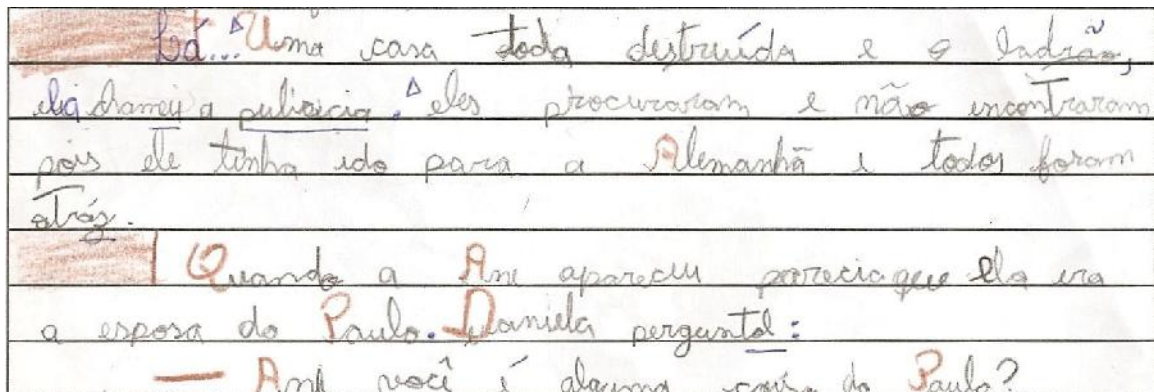 Lá... Uma casa toda destruída e o ladrão,
ela chamei a puliaicia. eles procuraram e não encontraram
pois ele tinha ido para a Alemanhã e todos foram
atráz.
Quando a Ane apareceu parecia que ela era
a esposa do Paulo. Daniela perguntol:
— Ane você é alguma coisa do Paulo?